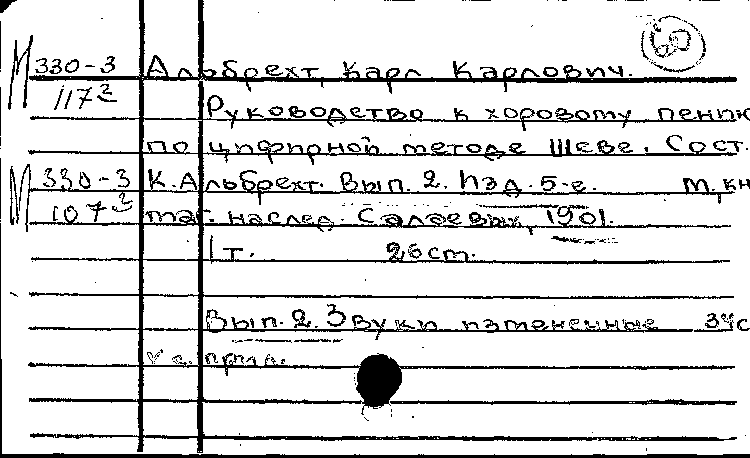 60
М 330-3 Альбрехт, Карл Карлович.
117² Руководство к хоровому пению
по цифирной методе Шеве. Сост.
М 330-3 К. Альбрехт. Вып. 2. Изд. 5-е. М, кн
107² маг. наслед. Салаевых, 1901.
1 т. 26 cm.
Вып. 2. Звуки измененные 34 с